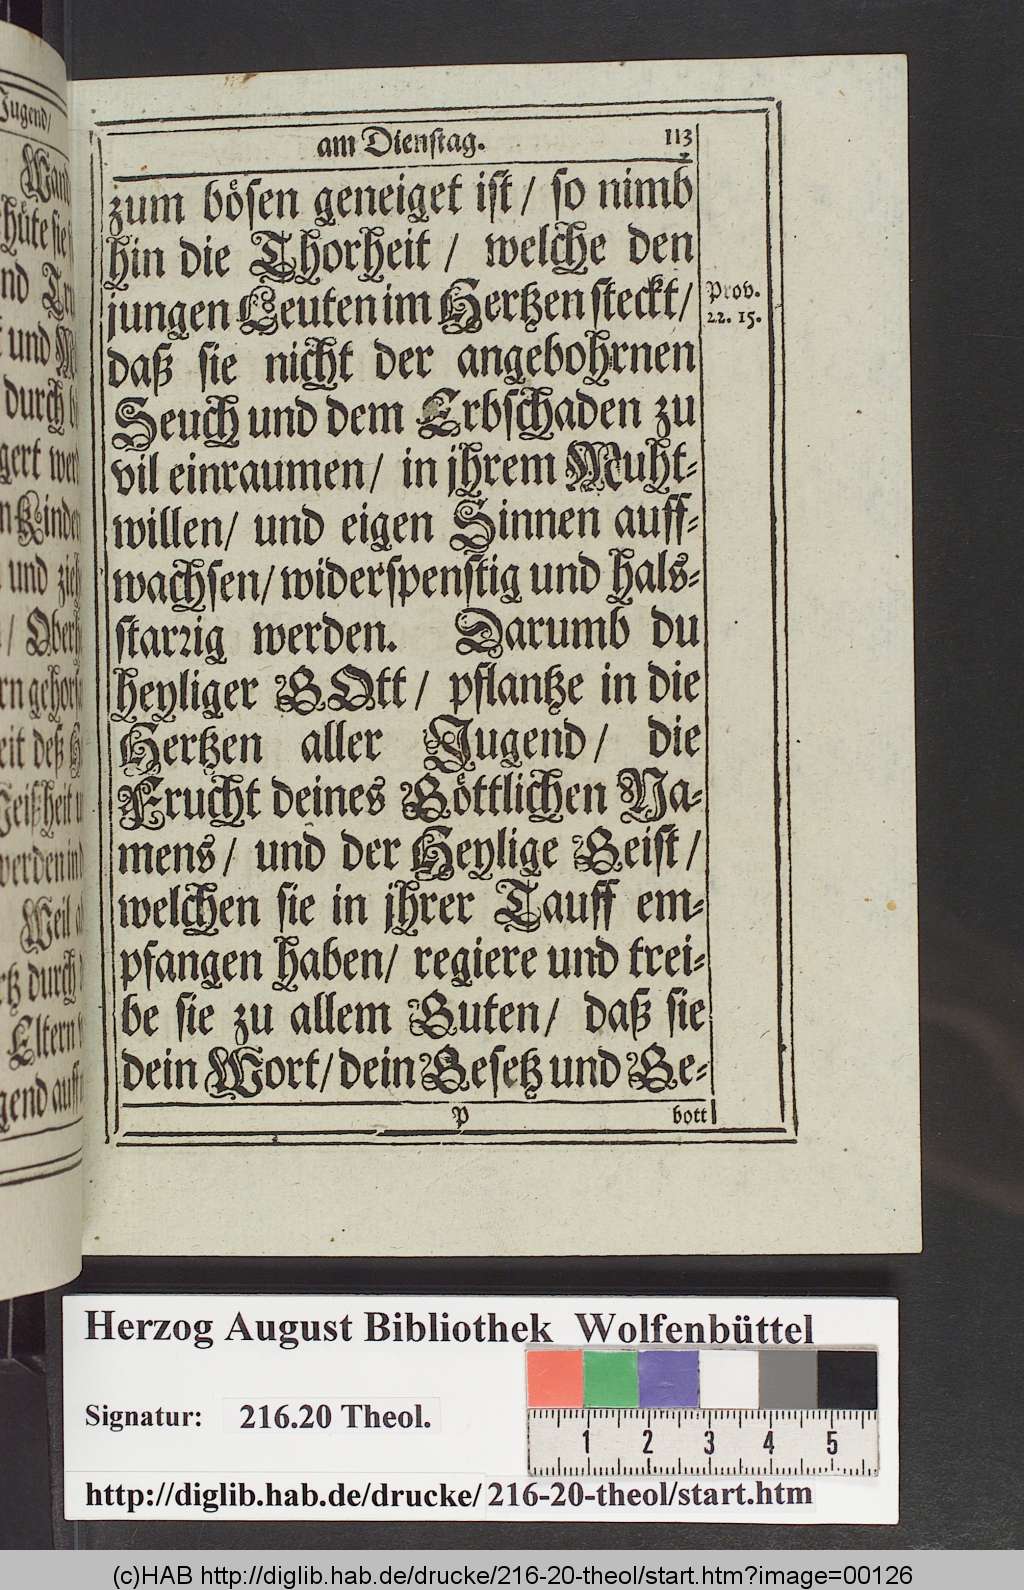 Jugend/
hüte sie
und
durch
gert
und
/ Ober
eit deß
werden
Weil
durch
Eltern
gend auff
am Dienstag. 113
zum bösen geneiget ist / so nimb
hin die Thorheit / welche den
jungen Leuten im Hertzen steckt/
Prov.
22. 15.
daß sie nicht der angebohrnen
Seuch und dem Erbschaden zu
vil einraumen/ in jhrem Muht-
willen/ und eigen Sinnen auff-
wachsen/ widerspenstig und hals-
starrig werden. Darumb du
heyliger GOtt / pflantze in die
Hertzen aller Jugend/ die
Frucht deines Göttlichen Na-
mens / und der Heylige Geist /
welchen sie in jhrer Tauff em-
pfangen haben/ regiere und trei-
be sie zu allem Guten/ daß sie
dein Wort/ dein Gesetz und Ge-
P bott
Herzog August Bibliothek Wolfenbüttel
Signatur: 216.20 Theol.
1 2 3 4 5
http://diglib.hab.de/drucke/216-20-theol/start.htm
(c)HAB http://diglib.hab.de/drucke/216-20-theol/start.htm?image=00126